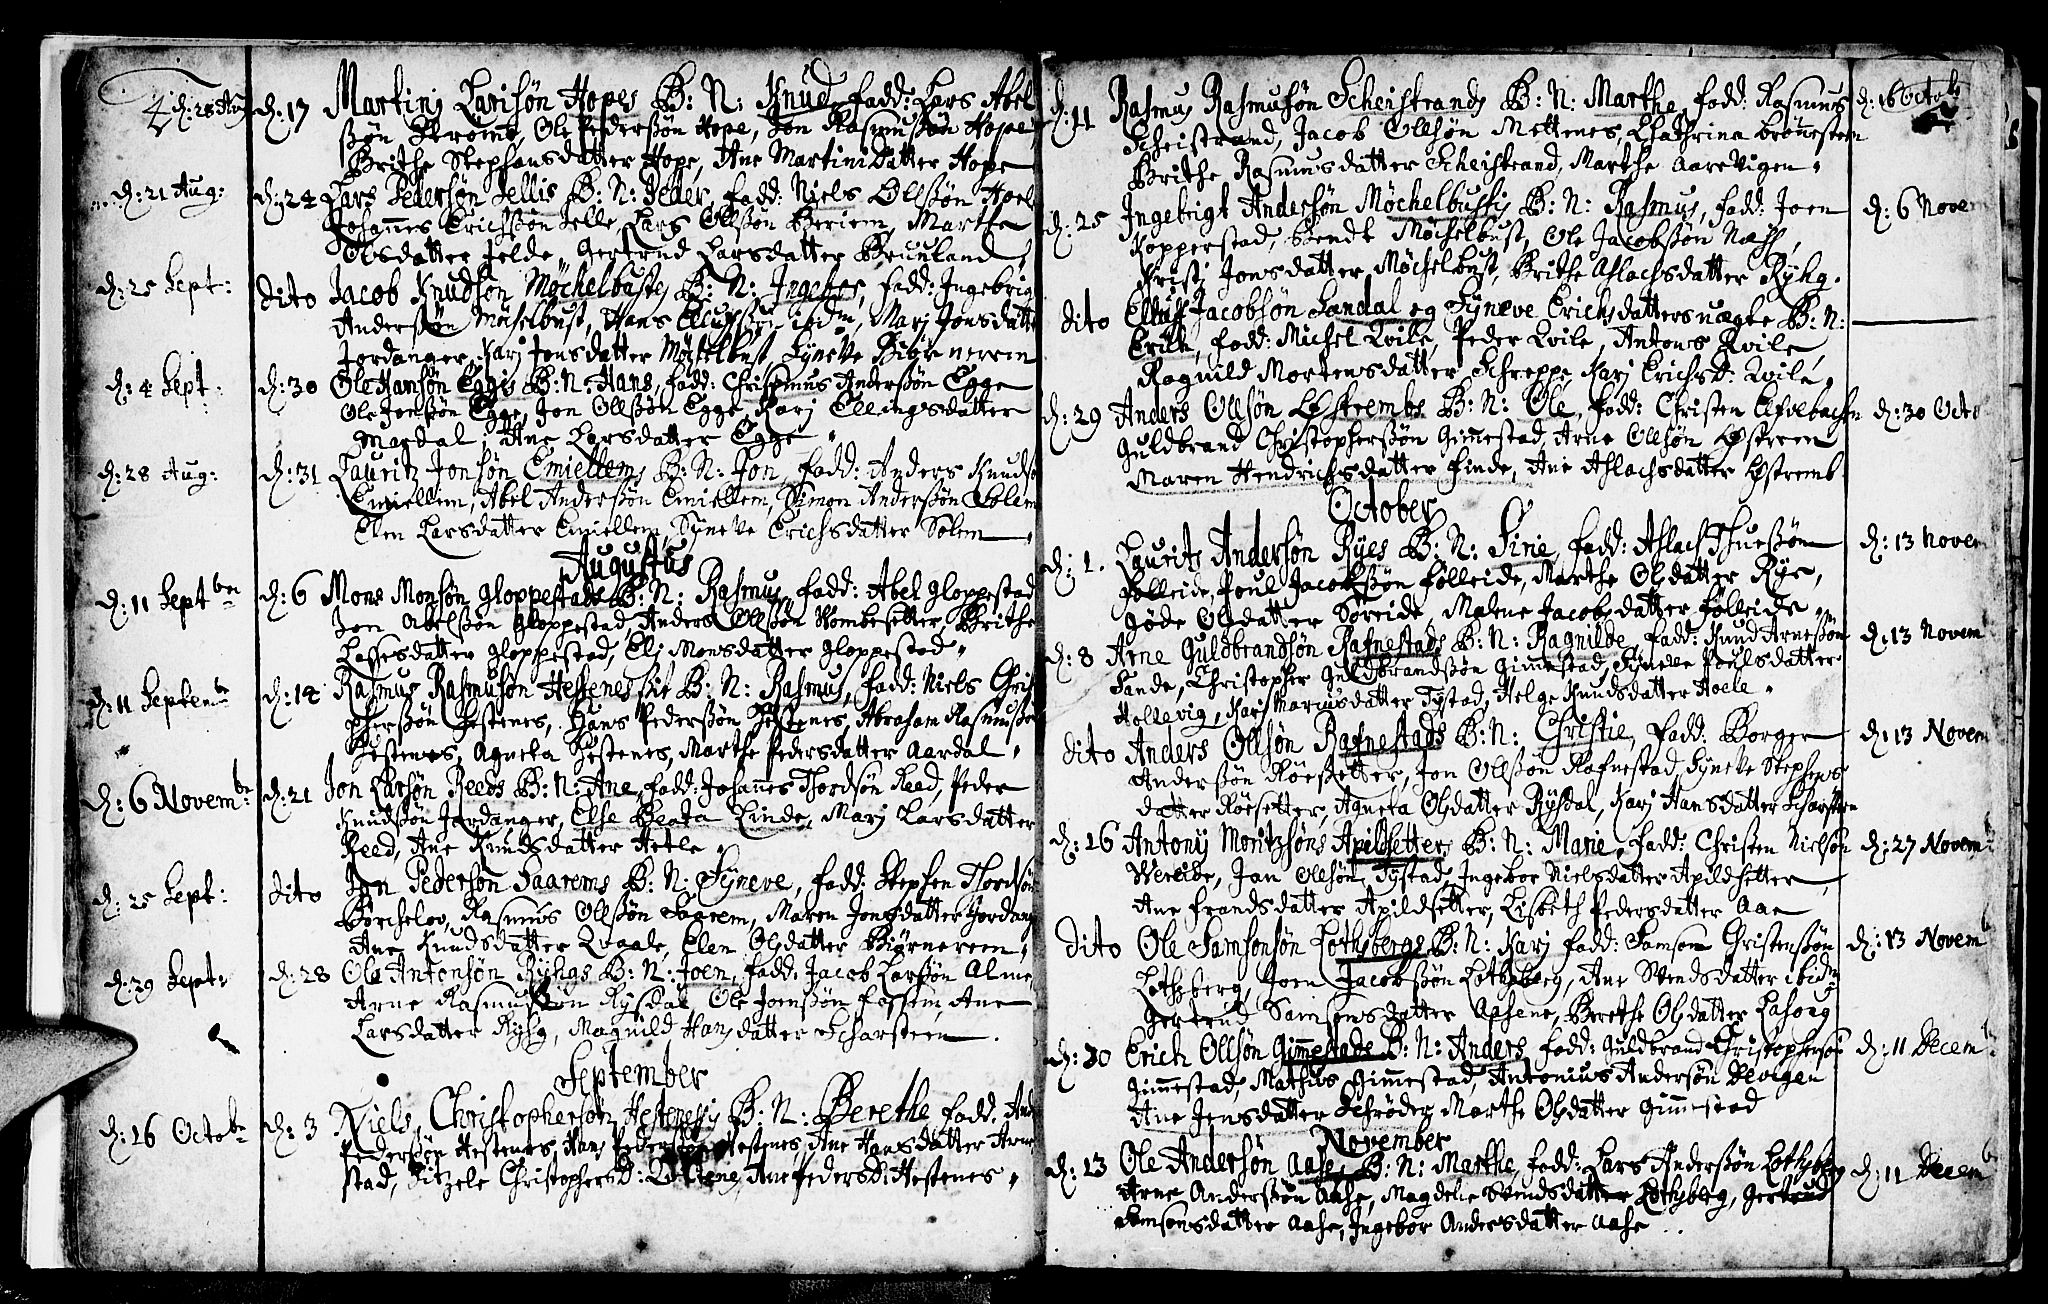 4 d: 28 Aug
d: 17 Martinj Larisøn Hopes B: N: Knud, fadd: Lars Abel
ßøn Strøms, Ole Pederßøn Hope, Jon Rasmusßøn Hope
Brithe Stephansdatter Hope, Ane Martinidatter Hope
d: 21 Aug:
d: 24 Lars Pedersøn Jellis B: N: Peder, fadd: Niels Ollßøn Hoel
Johannes Erichßøn Jelle, Lars Ollßøn Beriem, Marthe
Olsdatter Felde, Gertrud Larsdatter Brunland
d: 25 Sept:
dito Jacob Knudsøn Møchelbustes B: N: Ingebor, fadd: Ingebrig
Anderßøn Møchelbust, Hans ibidm, Marj Jonsdatter
Jordanger, Karj Jonsdatter Møchelbust, Syneve Biørnereim
d: 4 Sept:
d: 30 Ole Hansøn Eggis B: N: Hans, fadd: Christmus Anderßøn Egge
Ole Jonßøn Egge, Jon Ollßøn Egge, Karj Ellingsdatter
Mardal, Ane Larsdatter Egge
d: 28 Aug:
d: 31 Lauritz Jonsøn Emiellems B: N: Jon, fadd: Anders Knuds
Emiellem, Abel Anderßøn Emiellem, Simon Anderßøn Solem
Elen Larsdatter Emiellem, Syneve Erichsdatter Solem
Augustus
d: 11 Septbr
d: 6 Mons Monsøn Gloppestads B: N: Rasmus, fadd: Abel Gloppestad
Jon Abelßøn Gloppestad, Anders Ollßøn Wombesetter, Brithe
Lassesdatter Gloppestad, Eli Monsdatter Gloppestad
d: 11 Septembr
d: 14 Rasmus Rasmusøn Hestenesøie B: N: Rasmus, fadd: Niels Chris
pherßøn Hestenes, Hans Pederßøn Hestenes, Abraham Rasmusßøn
Hestenes, Agneta Hestenes, Marthe Pedersdatter Aardal
d: 6 Novembr:
d: 21 Jon Larsøn Reeds B: N: Ane, fadd: Johannes Thordsøn Reed, Peder
Knudßøn Jordanger, Else Beata Linde, Marj Larsdatter
Reed, Ane Knudsdatter Hetle
d: 25 Sept:
dito Jon Pedersøn Saarems B: N: Syneve, fadd: Stephen Thordsøn
Børchelov, Rasmus Ollßøn Saarem, Maren Jonsdatter Jordang
Ane Knudsdatter Qvaale, Elen Olsdatter Biørnereem
d: 29 Sept:
d: 28 Ole Antonsøn Rÿhgs B: N: Joen, fadd: Jacob Larßøn Alme
Arne Rasmusßøn Rysdal, Ole Joenßøn Fossem, Ane
Larsdatter Ryhg, Magnild Hansdatter Scharsteen
September
d: 16 Octobr
d: 3 Niels Christophersøn Hestenesis B: N: Berethe fadd: And
Pederßøn Hestenes, Hans Pederßøn Hestenes, Ane Hansdatter Arne
stad, Sitzele Christophersd: Ane Pedersd: Hestenes
d: 11 Rasmus Rasmusøn Scheistrands B: N: Marthe, fadd: Rasmus
Scheistrand, Jacob Ollsøn Mettenes, Chathrina Brønesteen
Brithe Rasmusdatter Scheistrand, Marthe Aarevigen
d: 16 Octob
d: 25 Ingebrigt Andersøn Møchelbustis B: N: Rasmus, fadd: Joen
Kopperstad, Bendt Møchelbust, Ole Jacobßøn Næss,
Kristj Jonsdatter Møchelbust, Brithe Aslachsdatter Ryhg.
d: 6 Novem
dito Elluff Jacobsøn Sandal og Syneve Erichsdatters uægte B: N:
Erich, fadd: Michel Qvile, Peder Qvile, Antons Qvile
Ragnild Mortensdatter Schreppe, Karj Erichsd: Qvile
d: 29 Anders Ollsøn Løstrembs B: N: Ole, fadd: Christen
Guldbrand Christopherßøn Gimmestad, Arne Ollsøn Løstreem
Maren Hendrichsdatter Finde, Ane Aslachsdatter Løstremb
d: 30 Octo
October
d: 1. Laurits Andersøn Ryes B: N: Sirie, fadd: Aslach Thueßøn
Følleide, Poul Jacobßøn Følleide, Marthe Olsdatter Rye,
Gøde Olsdatter Søreide, Malene Jacobsdatter Følleide
d: 13 Novem
d: 8 Arne Guldbrandsøn Rafnestads B: N: Ragnilde, fadd: Knud Arneßøn
Sande, Christopher Guldbrandßøn Gimmestad, Synneve Poulsdatter
Hollevig, Karj Mariusdatter Tystad, Helge Knudsdatter Hoele
d: 13 Novem
dito Anders Ollsøn Rafnestads B: N: Christie, fadd: Borger
Anderßøn Røesetter, Jon Ollßøn Rafnestad, Syneve Stephens
datter Røesetter, Agneta Olsdatter Rysdal, Karj Hansdatter Scharsteen
d: 13 Novem
d: 16 Antonj Moritzsøns Apildsetters B: N: Marie, fadd: Christen Nielsøn
Wereide, Jan Olesøn Tystad, Ingebor Nielsdatter Apildsetter
Ane Frandsdatter Apildsetter, Lisbeth Pedersdatter Aae
d: 27 Novem
dito Ole Samsonsøn Lothsbergs B: N: Karj fadd: Samson Christenßøn
Lothsberg, Joen Jacobßøn Lothsberg, Ane Svendsdatter ibidm
Gertrud Samsonsdatter Aasene, Berethe Olsdatter Lasong
d: 13 Novem
d: 30 Erich Ollsøn Gimmestads B: N: Anders, fadd: Guldbrand Christophersøn
Gimmestad, Mathis Gimmestad, Antonius Andersøn Devigen
Ane Jensdatter Schrøder, Marthe Olsdatter Gimmestad
d: 11 Decem
November
d: 13 Ole Andersøn Aase, B: N: Marthe, fadd: Lars Anderßøn Lothsberg
Arne Anderßøn Aase, Magdele Svendsdatter Lothsberg, Gertrud
Samsonsdatter Aase, Ingebor Andersdatter Aase
d: 11 Decem